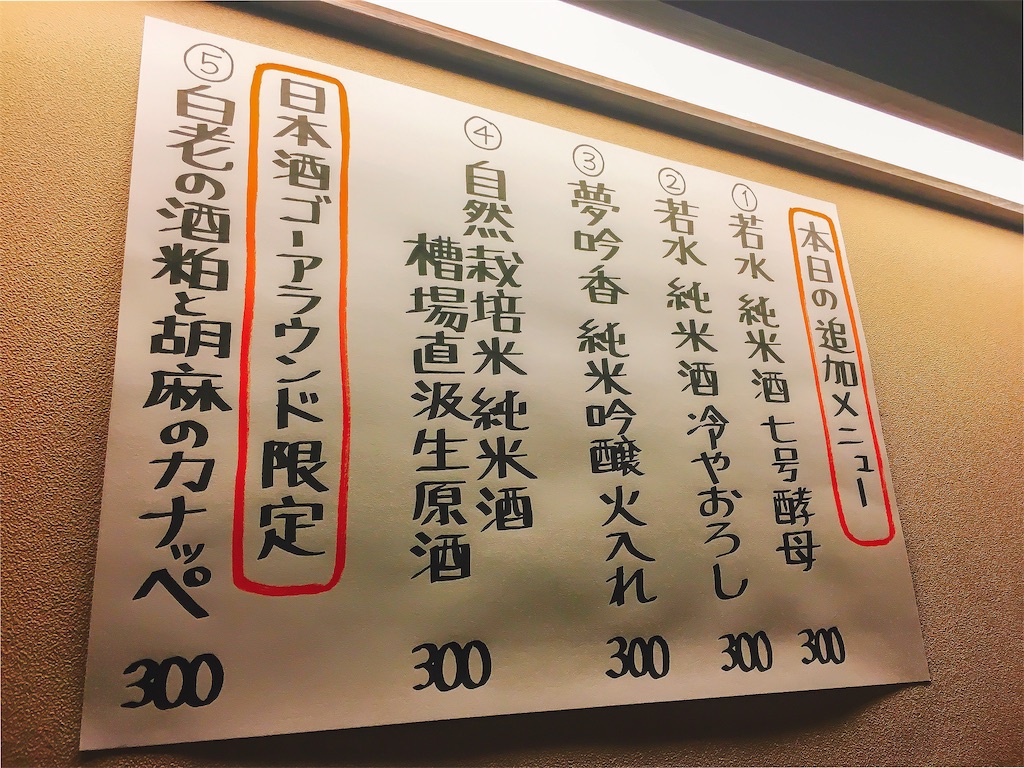 本日の追加メニュー
① 若水 純米酒 七号酵母 300
② 若水 純米酒 冷やおろし 300
③ 夢吟香 純米吟醸 火入れ 300
④ 自然栽培米 純米酒
槽場直汲生原酒 300
日本酒ゴーアラウンド限定
⑤ 白老の酒粕と胡麻のカナッペ 300